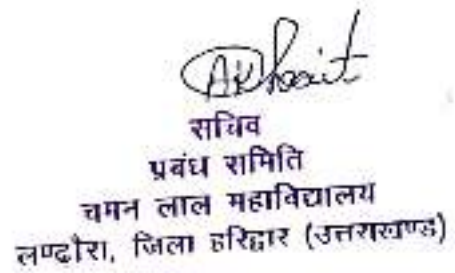 सचिव
प्रबंध समिति
चमन लाल महाविद्यालय
लण्ढौरा, जिला हरिद्वार (उत्तराखण्ड)